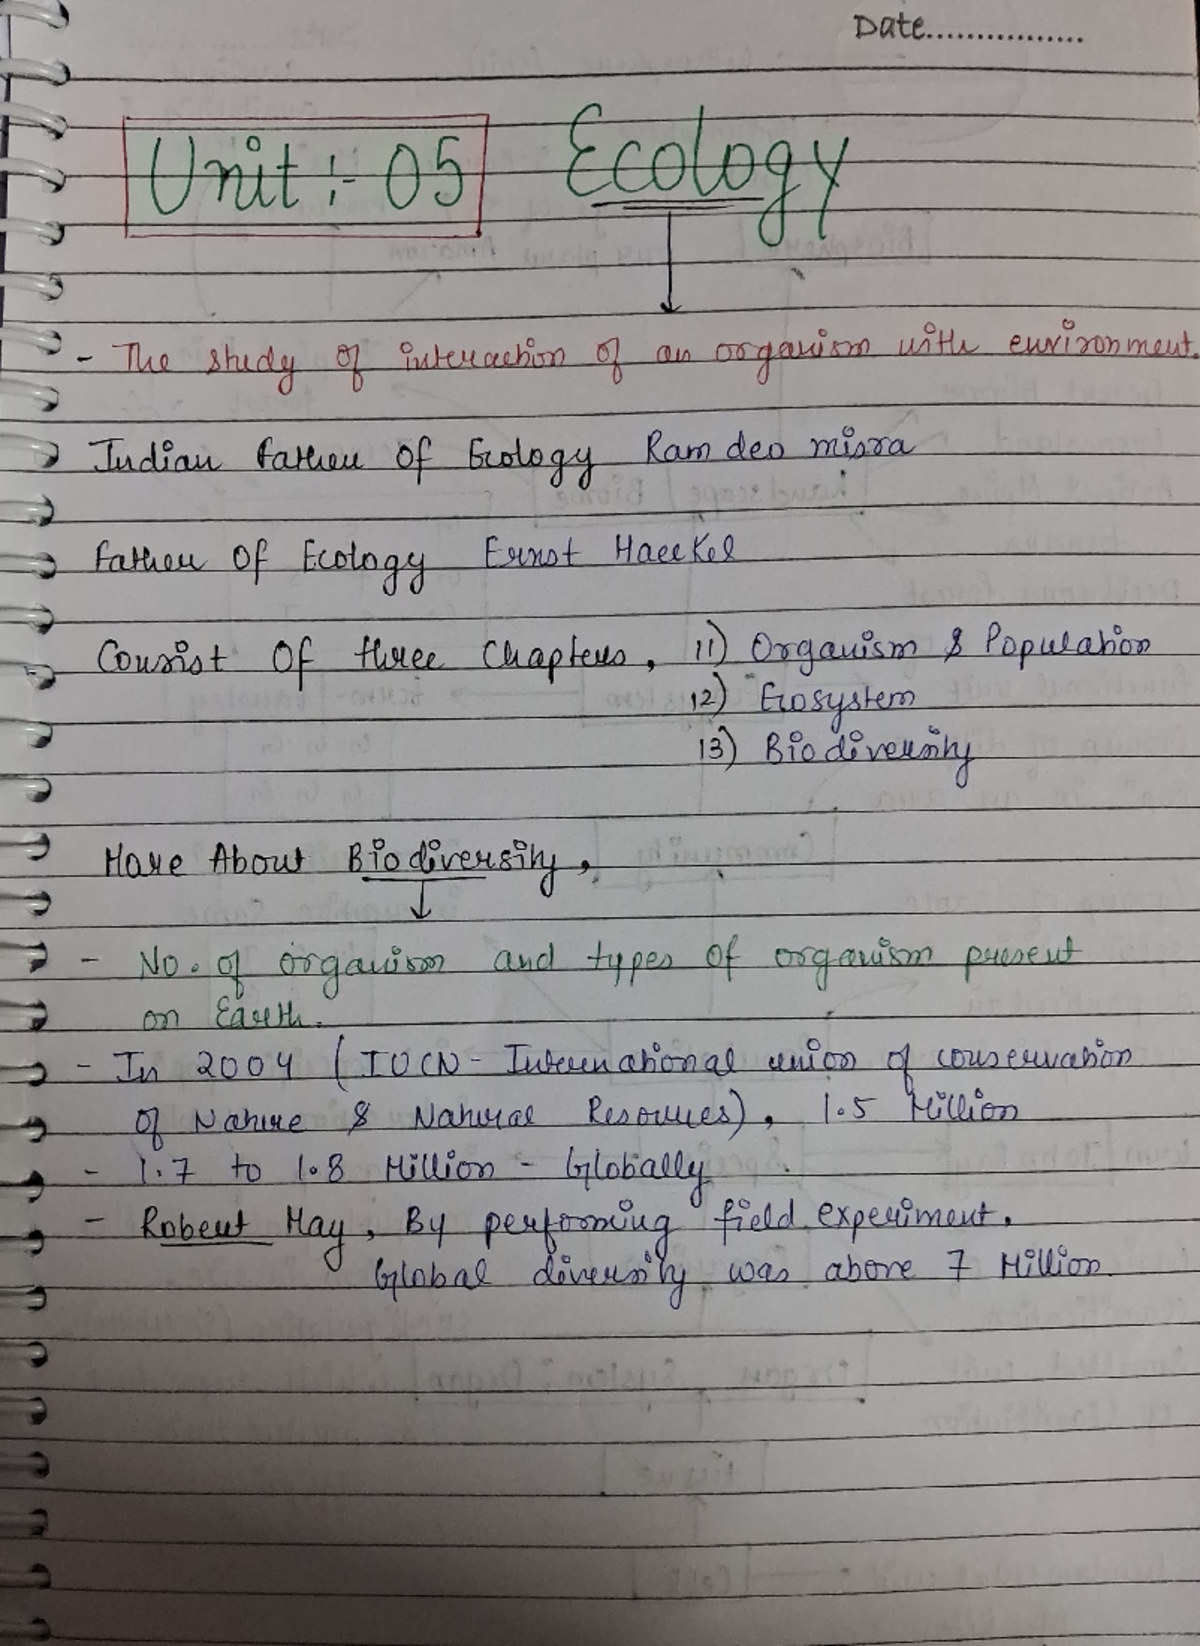 Date................
Unit :- 05 Ecology
- The study of interaction of an organism with environment.
Indian father of Ecology Ram deo misra
father of Ecology Ernst Haeckel
Consist of three Chapters, 11) Organism & Population
12) Ecosystem
13) Biodiversity
More About Biodiversity,
- No. of organism and types of organism present
on Earth.
- In 2004 (IUCN - International union of conservation
of Nature & Natural Resources), 1.5 Million
- 1.7 to 1.8 Million - Globally
- Robert May, By performing field experiment,
Global diversity was above 7 Million